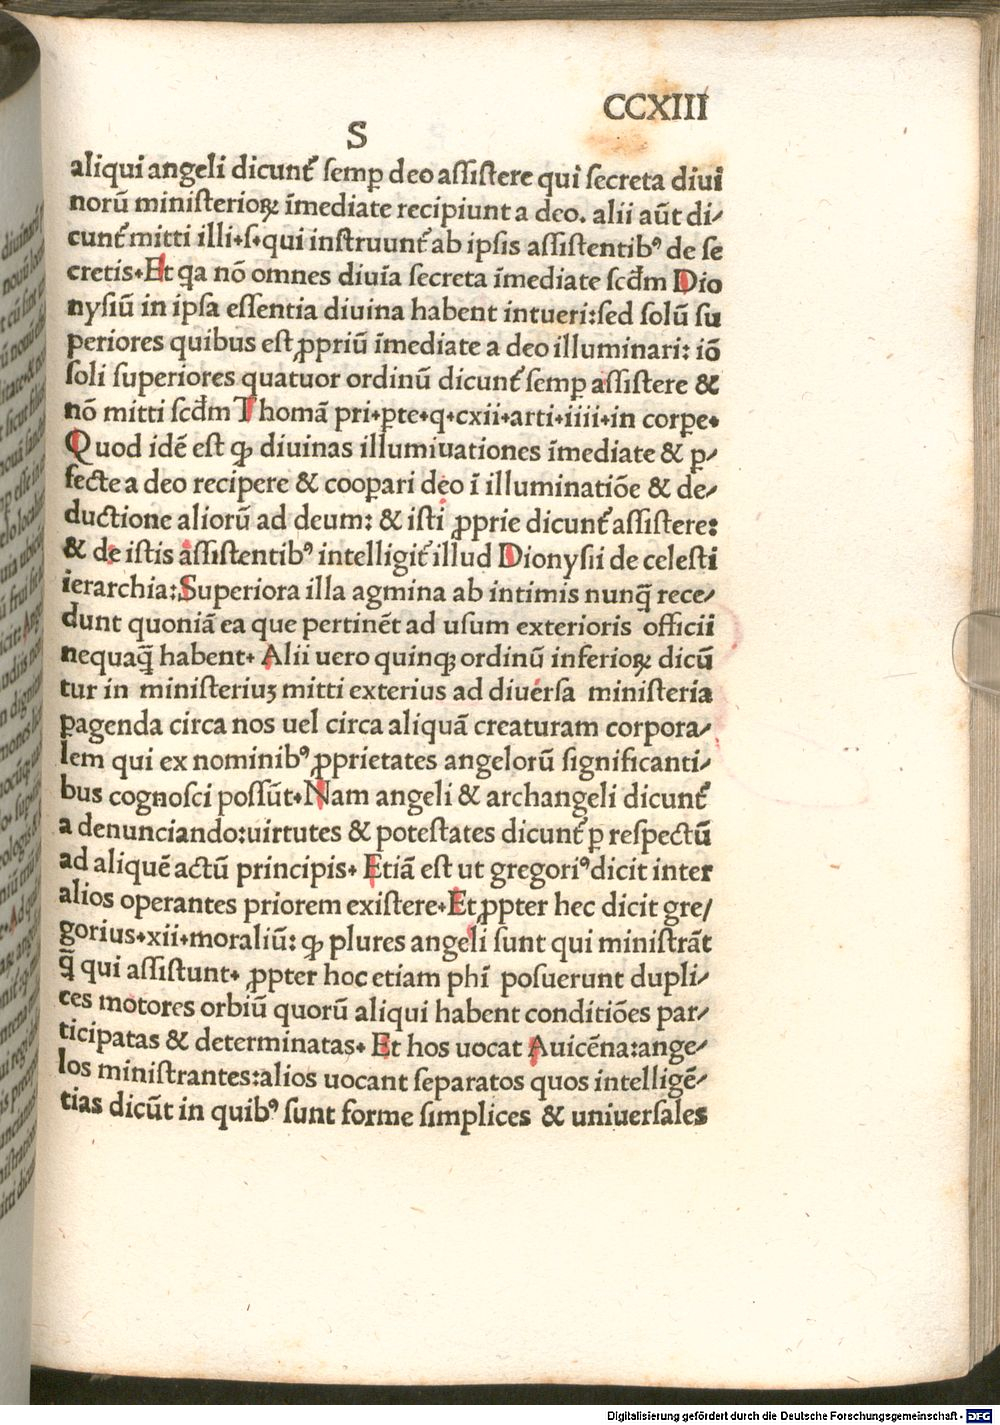 CCXIII
S
aliqui angeli dicunt᷑ semꝑ deo assistere qui secreta diui
norū ministerioꝝ īmediate recipiunt a deo. alii aūt di⸗
cunt᷑ mitti illi.s.qui instruunt᷑ ab ipsis assistentibꝰ de se
cretis.Et qa nō omnes diuīa secreta īmediate scd̄m Dio
nysiū in ipsa essentia diuina habent intueri:sed solū su
periores quibus est ꝓpriū īmediate a deo illuminari: iō
soli superiores quatuor ordinū dicunt᷑ semꝑ assistere &
nō mitti scd̄m Thomā pri.ꝑte.q.cxii.arti.iiii.in corꝑe.
Quod idē est qꝫ diuinas illumiuationes īmediate & ꝑ⸗
fecte a deo recipere & cooꝑari deo ī illuminatiōe & de⸗
ductione aliorū ad deum: & isti ꝓprie dicunt᷑ assistere:
& de istis assistentibꝰ intelligit᷑ illud Dionysii de celesti
ierarchia:Superiora illa agmina ab intimis nunq̄ rece⸗
dunt quoniā ea que pertinēt ad usum exterioris officii
nequaq̄ habent. Alii uero quinqꝫ ordinū inferioꝝ dicū
tur in ministeriuꝫ mitti exterius ad diuersa ministeria
ꝑagenda circa nos uel circa aliquā creaturam corpora⸗
lem qui ex nominibꝰ ꝓprietates angelorū significanti⸗
bus cognosci possūt.Nam angeli & archangeli dicunt᷑
a denunciando:uirtutes & potestates dicunt᷑ ꝑ respectū
ad aliquē actū principis. Etiā est ut gregoriꝰ dicit inter
alios operantes priorem existere.Et ꝓpter hec dicit gre/
gorius.xii.moraliū: qꝫ plures angeli sunt qui ministrāt
q̄ qui assistunt. ꝓpter hoc etiam phī posuerunt dupli⸗
ces motores orbiū quorū aliqui habent conditiōes par⸗
ticipatas & determinatas. Et hos uocat Auicēna:ange⸗
los ministrantes:alios uocant separatos quos intelligē⸗
tias dicūt in quibꝰ sunt forme simplices & uniuersales
Digitalisierung gefördert durch die Deutsche Forschungsgemeinschaft - DFG